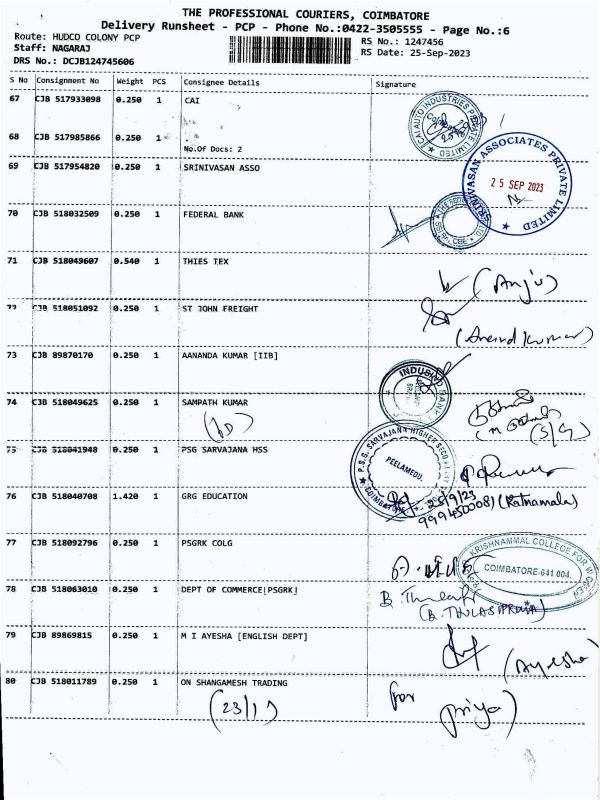 THE PROFESSIONAL COURIERS, COIMBATORE
Delivery Runsheet - PCP - Phone No.:0422-3505555 - Page No.:6
Route: HUDCO COLONY PCP
RS No.: 1247456
Staff: NAGARAJ
RS Date: 25-Sep-2023
DRS No.: DCJB124745606
S No Consignment No Weight PCS Consignee Details Signature
67 CJB 517933098 0.250 1 CAI
68 CJB 517985866 0.250 1
No.Of Docs: 2
69 CJB 517954820 0.250 1 SRINIVASAN ASSO
SRINIVASAN ASSOCIATES PRIVATE LIMITED
25 SEP 2023
70 CJB 518032509 0.250 1 FEDERAL BANK
71 CJB 518049607 0.540 1 THIES TEX
(Anju)
77 CJB 518051092 0.250 1 ST JOHN FREIGHT
(Anend Kumar)
73 CJB 89870170 0.250 1 AANANDA KUMAR [IIB]
INDUSIND BANK
74 CJB 518049625 0.250 1 SAMPATH KUMAR
75 CJB 518041948 0.250 1 PSG SARVAJANA HSS
P.S.G. SARVAJANA HIGHER SECO
PEELAMEDU.
COIMBATORE
76 CJB 518040708 1.420 1 GRG EDUCATION
25/9/23
9994500081 (Ratnamala)
77 CJB 518092796 0.250 1 PSGRK COLG
KRISHNAMMAL COLLEGE FOR WOMEN
COIMBATORE-641 004.
78 CJB 518063010 0.250 1 DEPT OF COMMERCE|PSGRK|
B. Thulasi
(B. THULASIPRIYA)
79 CJB 89869815 0.250 1 M I AYESHA [ENGLISH DEPT]
(Ayesha)
80 CJB 518011789 0.250 1 ON SHANGAMESH TRADING
(23/1)
for
priya)